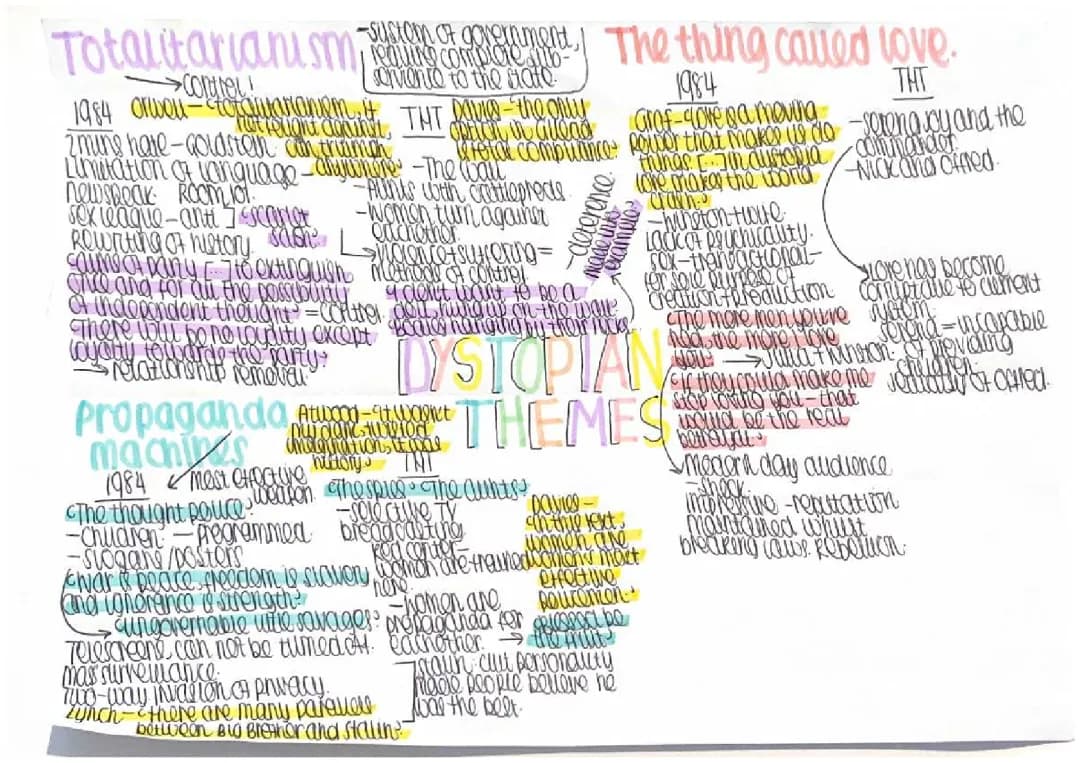 Totalitarianism
-system of government,
requiring complete sub-
servience to the state.
→ control!
1984
Orwell - "totalitarianism, if
not fought against,
can triumph
anywhere"
2 mins hate - goldstein
Limitation of language -
newspeak. Room 101.
sex league - anti ] "scarlet
sash"
Rewriting of history
aims of party [...] to extinguish
once and for all the possibility
of independent thought" = control
"There will be no loyalty except
loyalty towards the party"
→ relationship removal
THT
Davies - "the only
option is
total compliance"
- The wall
- Aunts with cattleprods
- women turn against
eachother.
violence + suffering =
methods of control
- deterrence
"I don't want to be a
doll hung up on the wall"
The thing called love.
1984
"love is a moving
power that makes us do
things [...] in dystopia
love makes the world
- Winston + Julia.
Lack of physicality.
sex - transactional -
for sole purpose of
creation + production
"The more men you've
had, the more I love
you" → Julia + Winston.
"if they could make me
stop loving you - that
would be the real
betrayal"
Modern day audience
- shock
impressive - reputation
maintained whilst
breaking laws. Rebellion.
THT
- Serena Joy and the
commander
- Nick and Offred.
Love has become
corruptable to current
system.
Serena = incapable
of providing
children
jealousy of Offred.
DYSTOPIAN
THEMES
propaganda
machines
→ most effective
weapon
1984
"The thought police"
- children - programmed
- slogans/posters
"war is peace. freedom is slavery
and ignorance is strength"
→ "ungovernable little savages"
Telescreens can not be turned off.
mass surveillance.
Two-way invasion of privacy.
Lynch - "there are many parallels
between Big Brother and Stalin"
Stalin: cult personality
made people believe he
was the best.
Atwood - "it wasn't
my dark, twisted
imagination, it was
history"
THT
"The spies" "The Aunts"
- selective TV
broadcasting
red center -
women are trained
here
- women are
propaganda for
eachother. → "blessed be
the fruit"
Davies -
"in this text,
women are
women's most
effective
policemen"